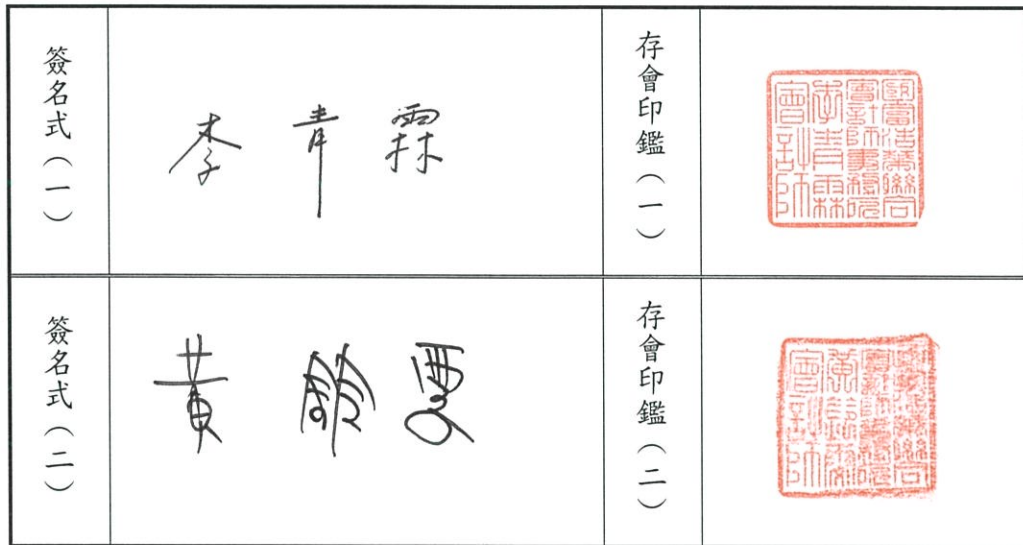 簽名式（一）
李青霖
存會印鑑（一）
國富浩華聯合
會計師事務所
李青霖
會計師
簽名式（二）
黃鈴雯
存會印鑑（二）
會計師事務所
黃鈴雯
會計師